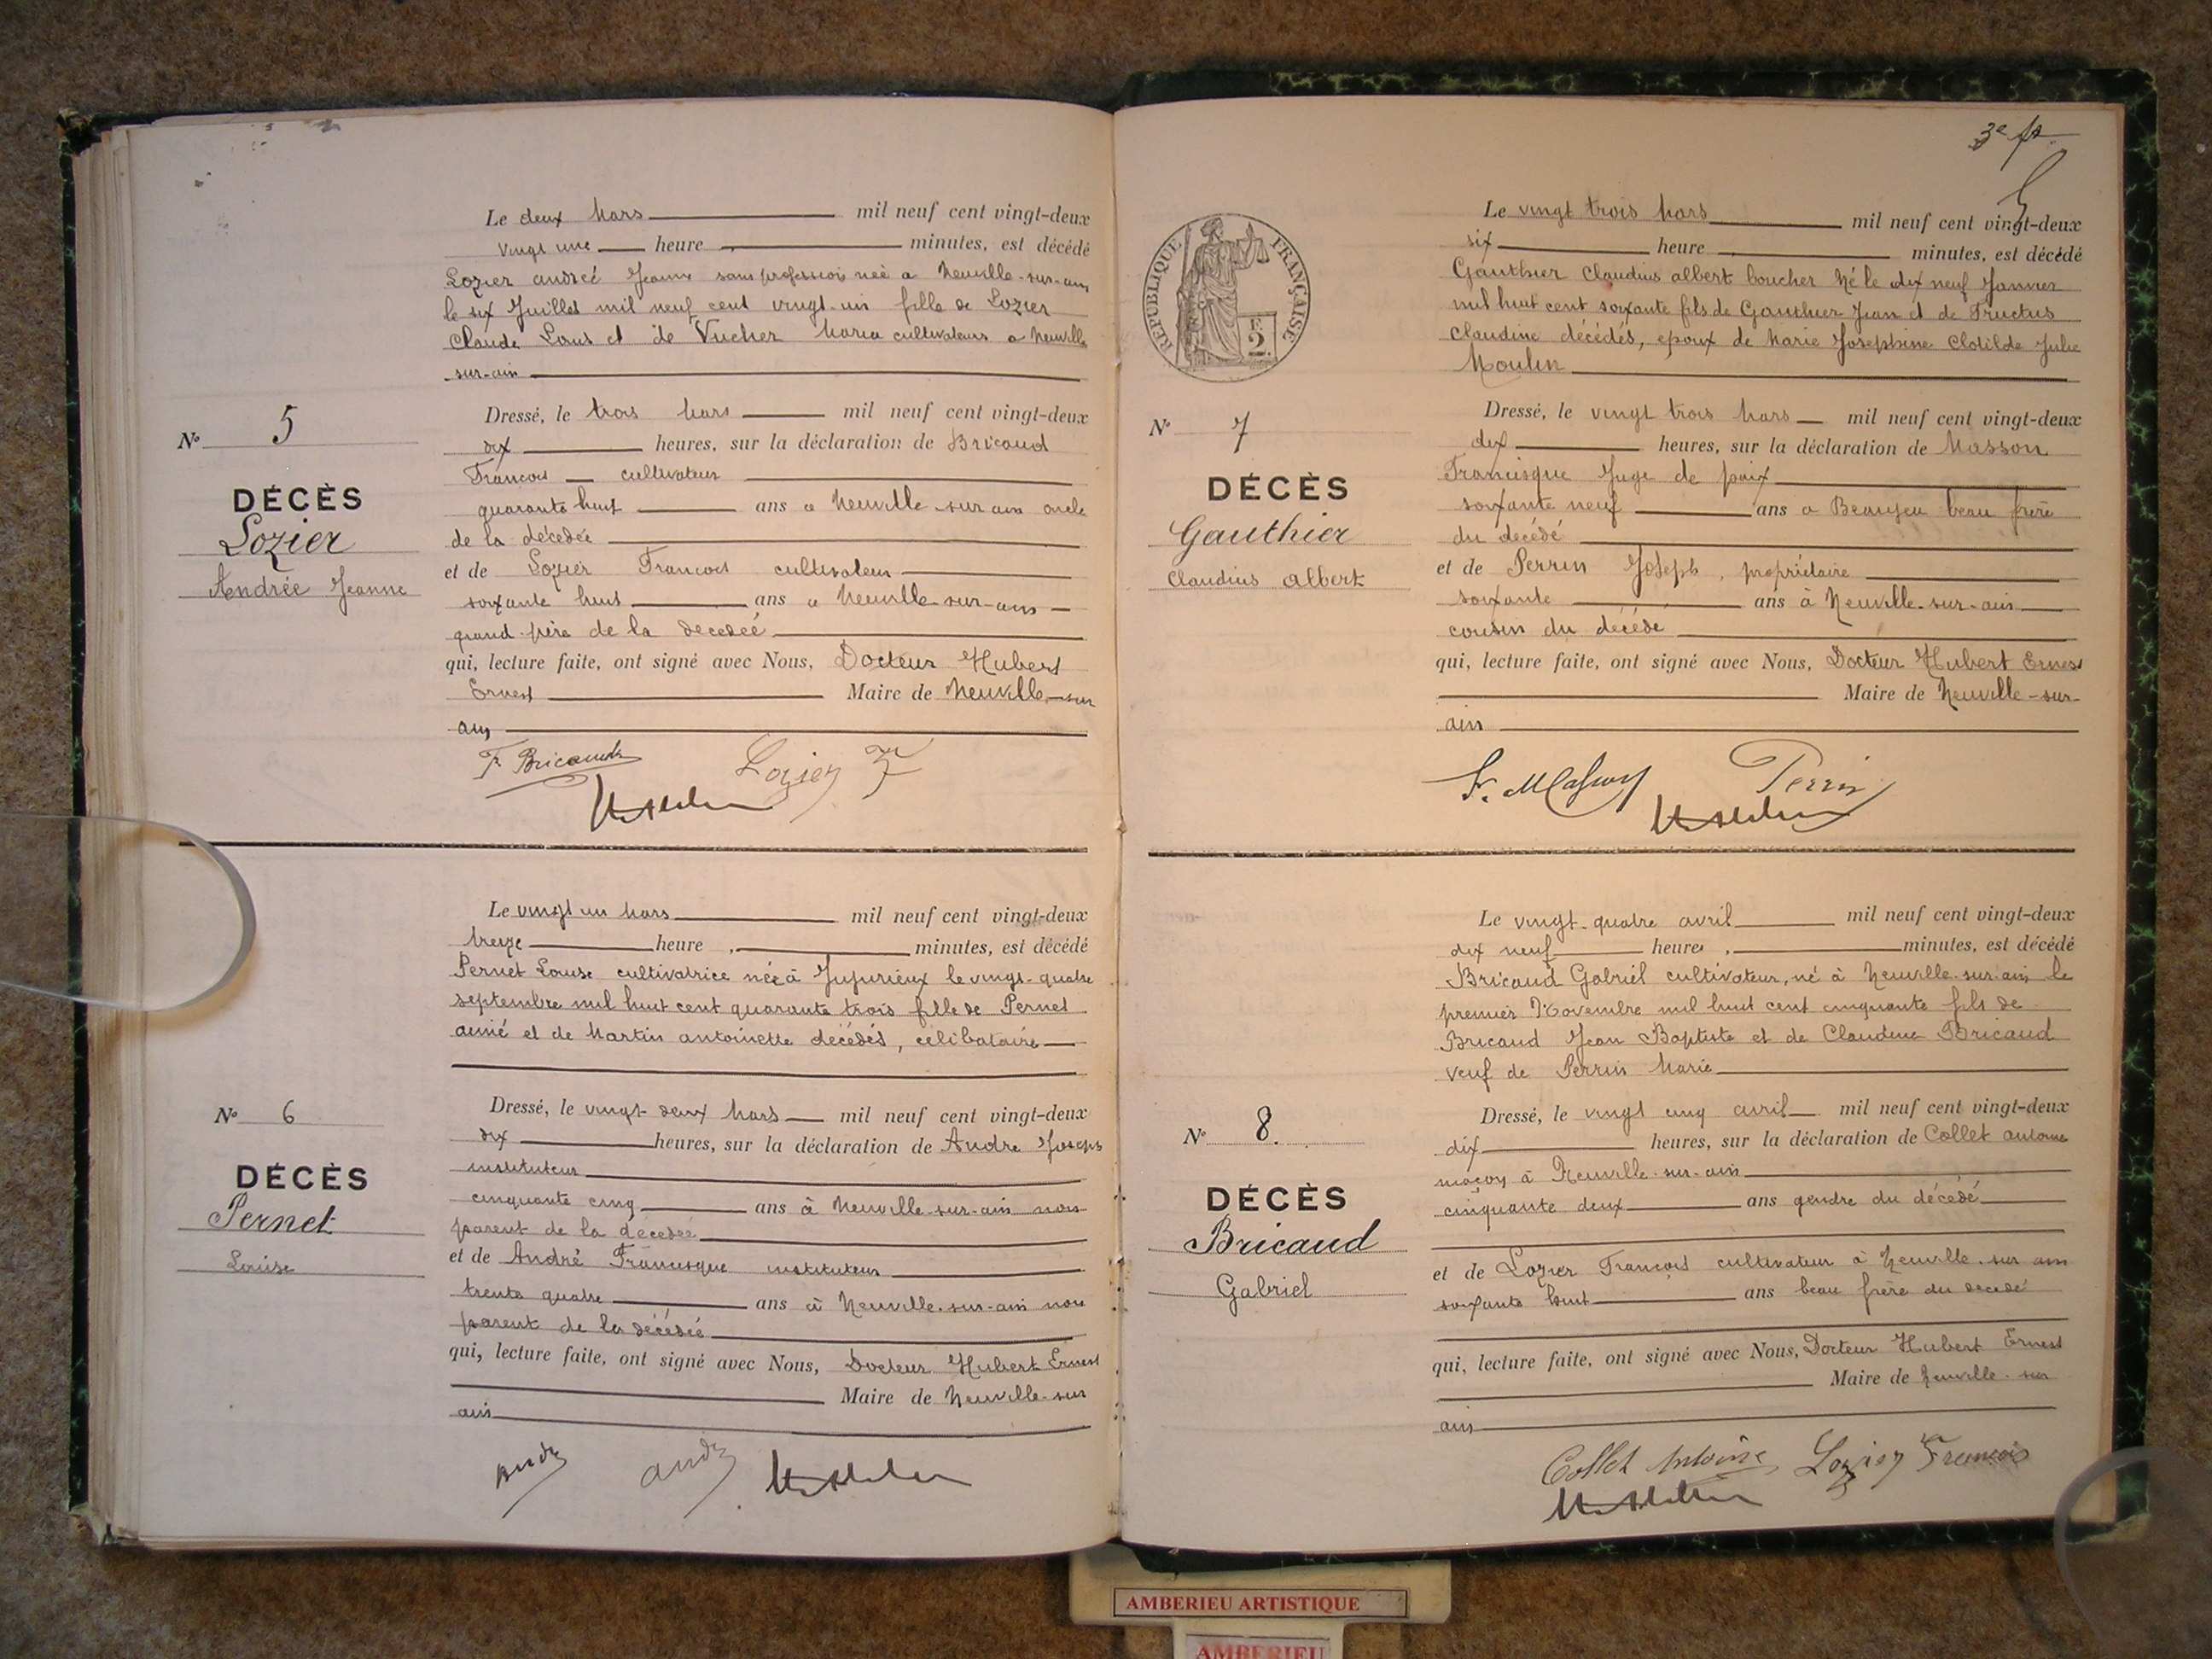 Le deux Mars mil neuf cent vingt-deux
vingt une heure minutes, est décédé
Lozier andreé Jeanne sans profession neè a Neuville-sur-ain
le six Juillet mil neuf cent vingt-un fille de Lozier
Claude Louis et de Vucher Maria cultivateurs a Neuville
sur-ain
Nº 5
DÉCÈS
Lozier
Andrée Jeanne
Dressé, le trois Mars mil neuf cent vingt-deux
dix heures, sur la déclaration de Bricaud
Francois cultivateur
quarante huit ans a Neuville-sur ain oncle
de la décedeé
et de Lozier Francois cultivateur
soixante huit ans a Neuville-sur-ain
grand-père de la decedeé
qui, lecture faite, ont signé avec Nous, Docteur Hubert
Ernest Maire de Neuville-sur
ain
F. Bricaud
Lozier F
Le vingt un Mars mil neuf cent vingt-deux
treize heure , minutes, est décédé
Pernet Louise cultivatrice née à Jujurieux le vingt-quatre
septembre mil huit cent quarante trois fille de Pernet
aimé et de Martin antoinette décédés, célibataire
Nº 6
DÉCÈS
Pernet
Louise
Dressé, le vingt deux Mars mil neuf cent vingt-deux
dix heures, sur la déclaration de Andre Joseph
instituteur
cinquante cinq ans à Neuville-sur-ain non
parent de la décedeé
et de André Francisque instituteur
trente quatre ans à Neuville-sur-ain non
parent de la décédeé
qui, lecture faite, ont signé avec Nous, Docteur Hubert Ernest
Maire de Neuville-sur
ain
André
andré
3e
RÉPUBLIQUE FRANÇAISE
2
Le vingt trois Mars mil neuf cent vingt-deux
six heure minutes, est décédé
Gauthier Claudius albert boucher Né le dix neuf Janvier
mil huit cent soixante fils de Gauthier Jean et de Fructus
Claudine décédés, epoux de Marie Josephine Clotilde Julie
Moulin
Nº 7
DÉCÈS
Gauthier
Claudius albert
Dressé, le vingt trois Mars mil neuf cent vingt-deux
dix heures, sur la déclaration de Masson
Francisque Juge de paix
soixante neuf ans a Beaujeu beau frère
du decédé
et de Perrin Joseph, propriétaire
soixante ans à Neuville-sur-ain
cousin du décédé
qui, lecture faite, ont signé avec Nous, Docteur Hubert Ernest
Maire de Neuville-sur-
ain
F. Masson
Perrin
Le vingt-quatre avril mil neuf cent vingt-deux
dix neuf heures , minutes, est décédé
Bricaud Gabriel cultivateur, né à Neuville-sur-ain le
premier Novembre mil huit cent cinquante fils de
Bricaud Jean Baptiste et de Claudine Bricaud
veuf de Perrin Marie
Nº 8.
DÉCÈS
Bricaud
Gabriel
Dressé, le vingt cinq avril mil neuf cent vingt-deux
dix heures, sur la déclaration de Collet antoine
maçon à Neuville-sur-ain
cinquante deux ans gendre du décédé
et de Lozier François cultivateur à Neuville-sur ain
soixante huit ans beau frère du decedé
qui, lecture faite, ont signé avec Nous, Docteur Hubert Ernest
Maire de Neuville-sur
ain
Collet Antoine
Lozier Francois
AMBERIEU ARTISTIQUE
AMBERIEU